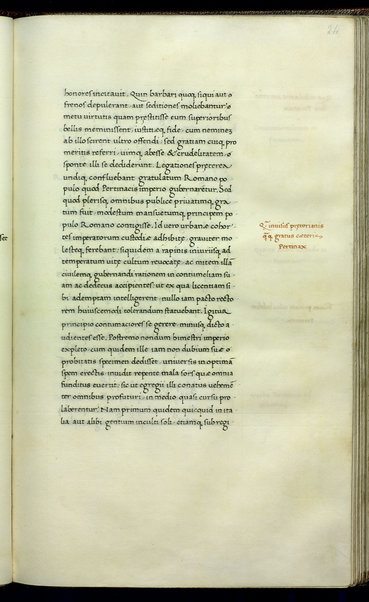 24
honores incitauit. Quin barbari quoq, si qui aut o
frenos depulerant aut seditiones moliebantur.
metu uirtutis quam prestitisse eum superioribus
bellis meminissent, iustitieq, fide, cum neminem
ab illo scirent ultro offendi, sed gratiam cuiq, pro
meritis referri, uimq, abesse & crudelitatem.
sponte illi se dediderunt. Legationes preterea
undiq, confluebant gratulatum Romano po
pulo quod Pertinacis imperio gubernaretur. Sed
quod plerisq, omnibus publice priuatimq, gra
tum fuit modestum mansuetumq, principem po
pulo Romano contigisse. Id uero urbane cohor
tes imperatorum custodie adhibite, grauiter mo
lesteq, ferebant, siquidem a rapinis iniuriisq, ad
temperatum uite cultum reuocate, ac mitem illam
ciuilemq, gubernandi rationem in contumeliam su
am ac dedecus accipientes ut ex qua licentiam si
bi ademptam intelligerent, nullo iam pacto recto
rem huiuscemodi tolerandum statuebant. Igitur
principio contumaciores se gerere, minusq, dicto a
udientes esse. Postremo nondum bimestri imperio
expleto cum quidem ille iam non dubium sue
probitatis specimen dedisset, uniuersis in optimam
spem erectis, inuidit repente mala sors que omnia
funditus euertit, sic ut egregii illi conatus uehemen
ter omnibus profuturi, in medio quasi cursu pro
laberentur. Nam primum quidem quicquid in ita
lia aut alibi gentium inculti soli, etiamq, sub regi
Q inuisus pretorianis
qq gratus ceteris
Pertinax